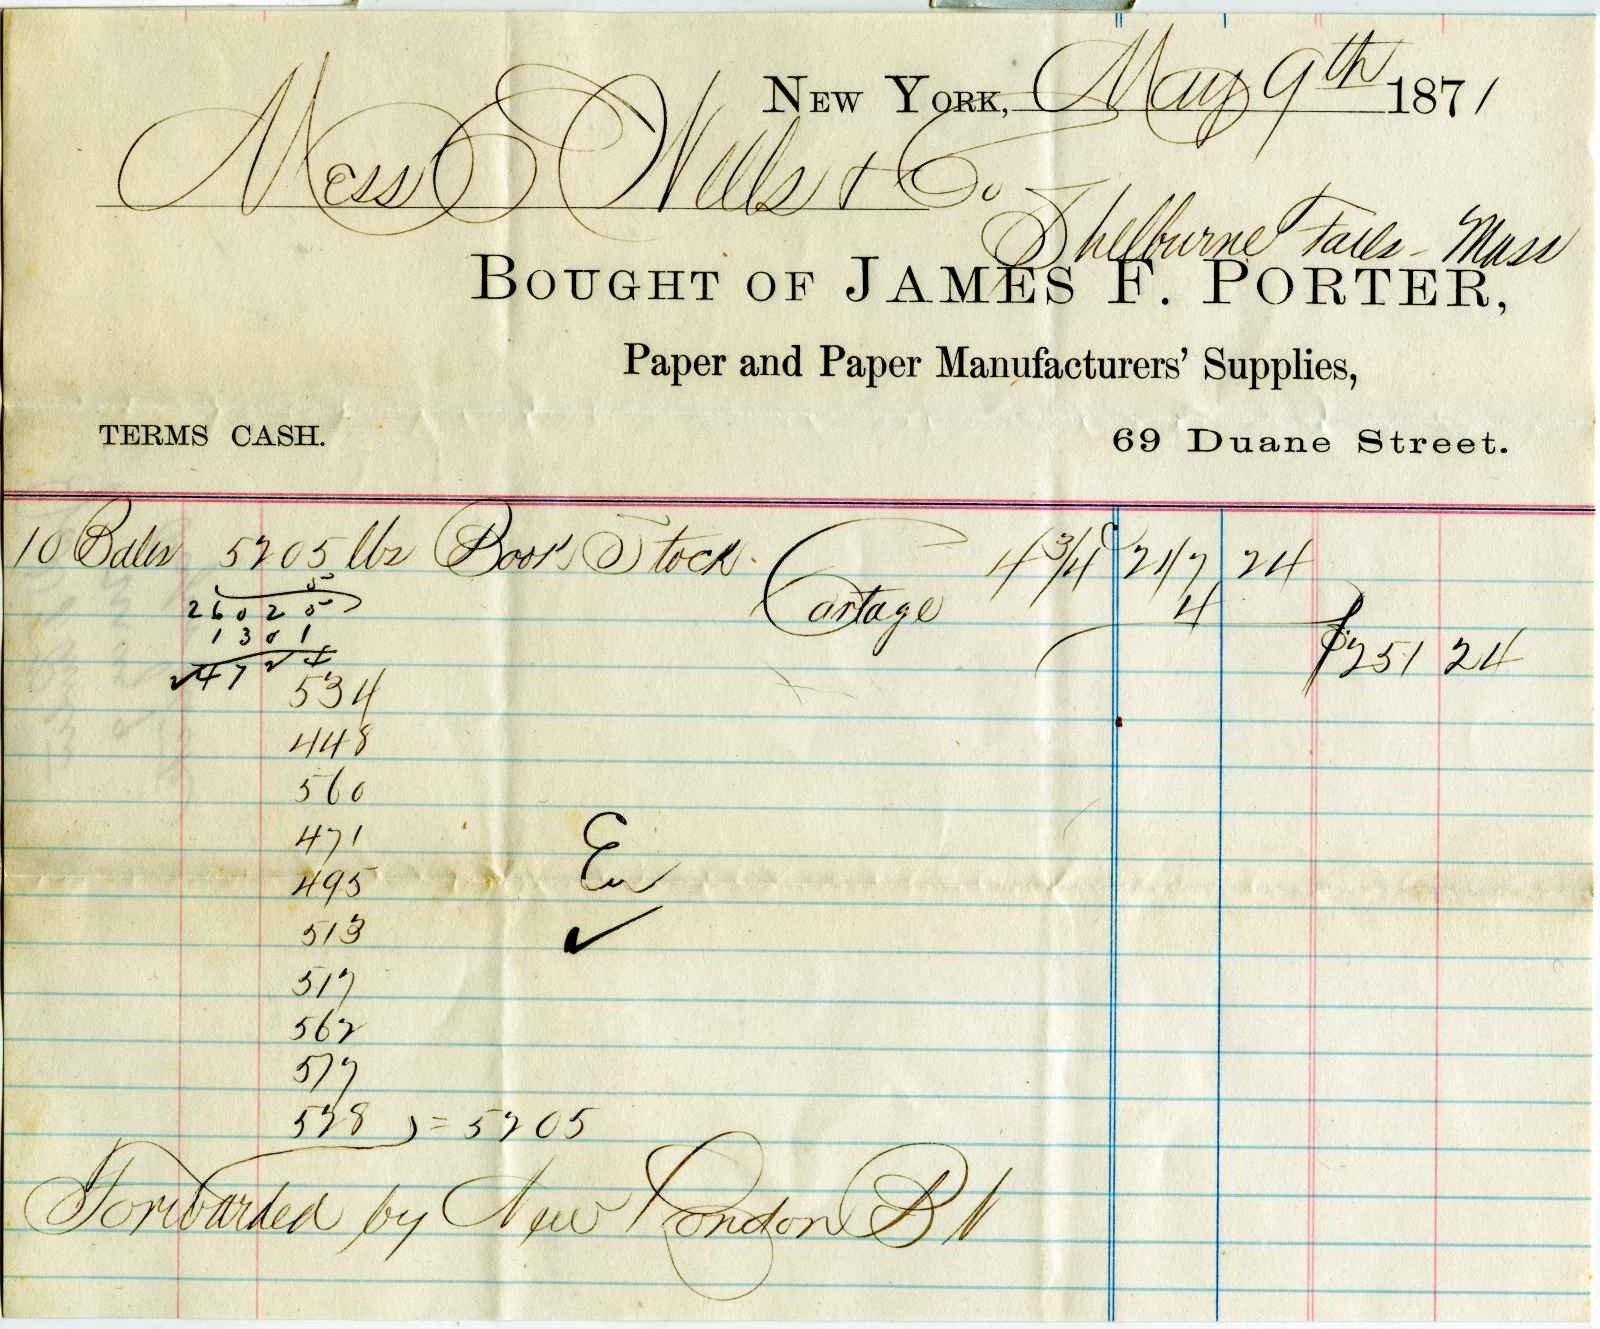 New York, May 9th 1871
Mess E Wells & Co
Shelburne Falls - Mass
Bought of James F. Porter,
Paper and Paper Manufacturers' Supplies,
TERMS CASH. 69 Duane Street.
10 Bales 5205 lbs Book Stock 4 3/4 247 24
5
26025 Cartage 4
1301 $251 24
24724
534
448
560
471
495
513
517
562
577
528 = 5205
Forwarded by New London